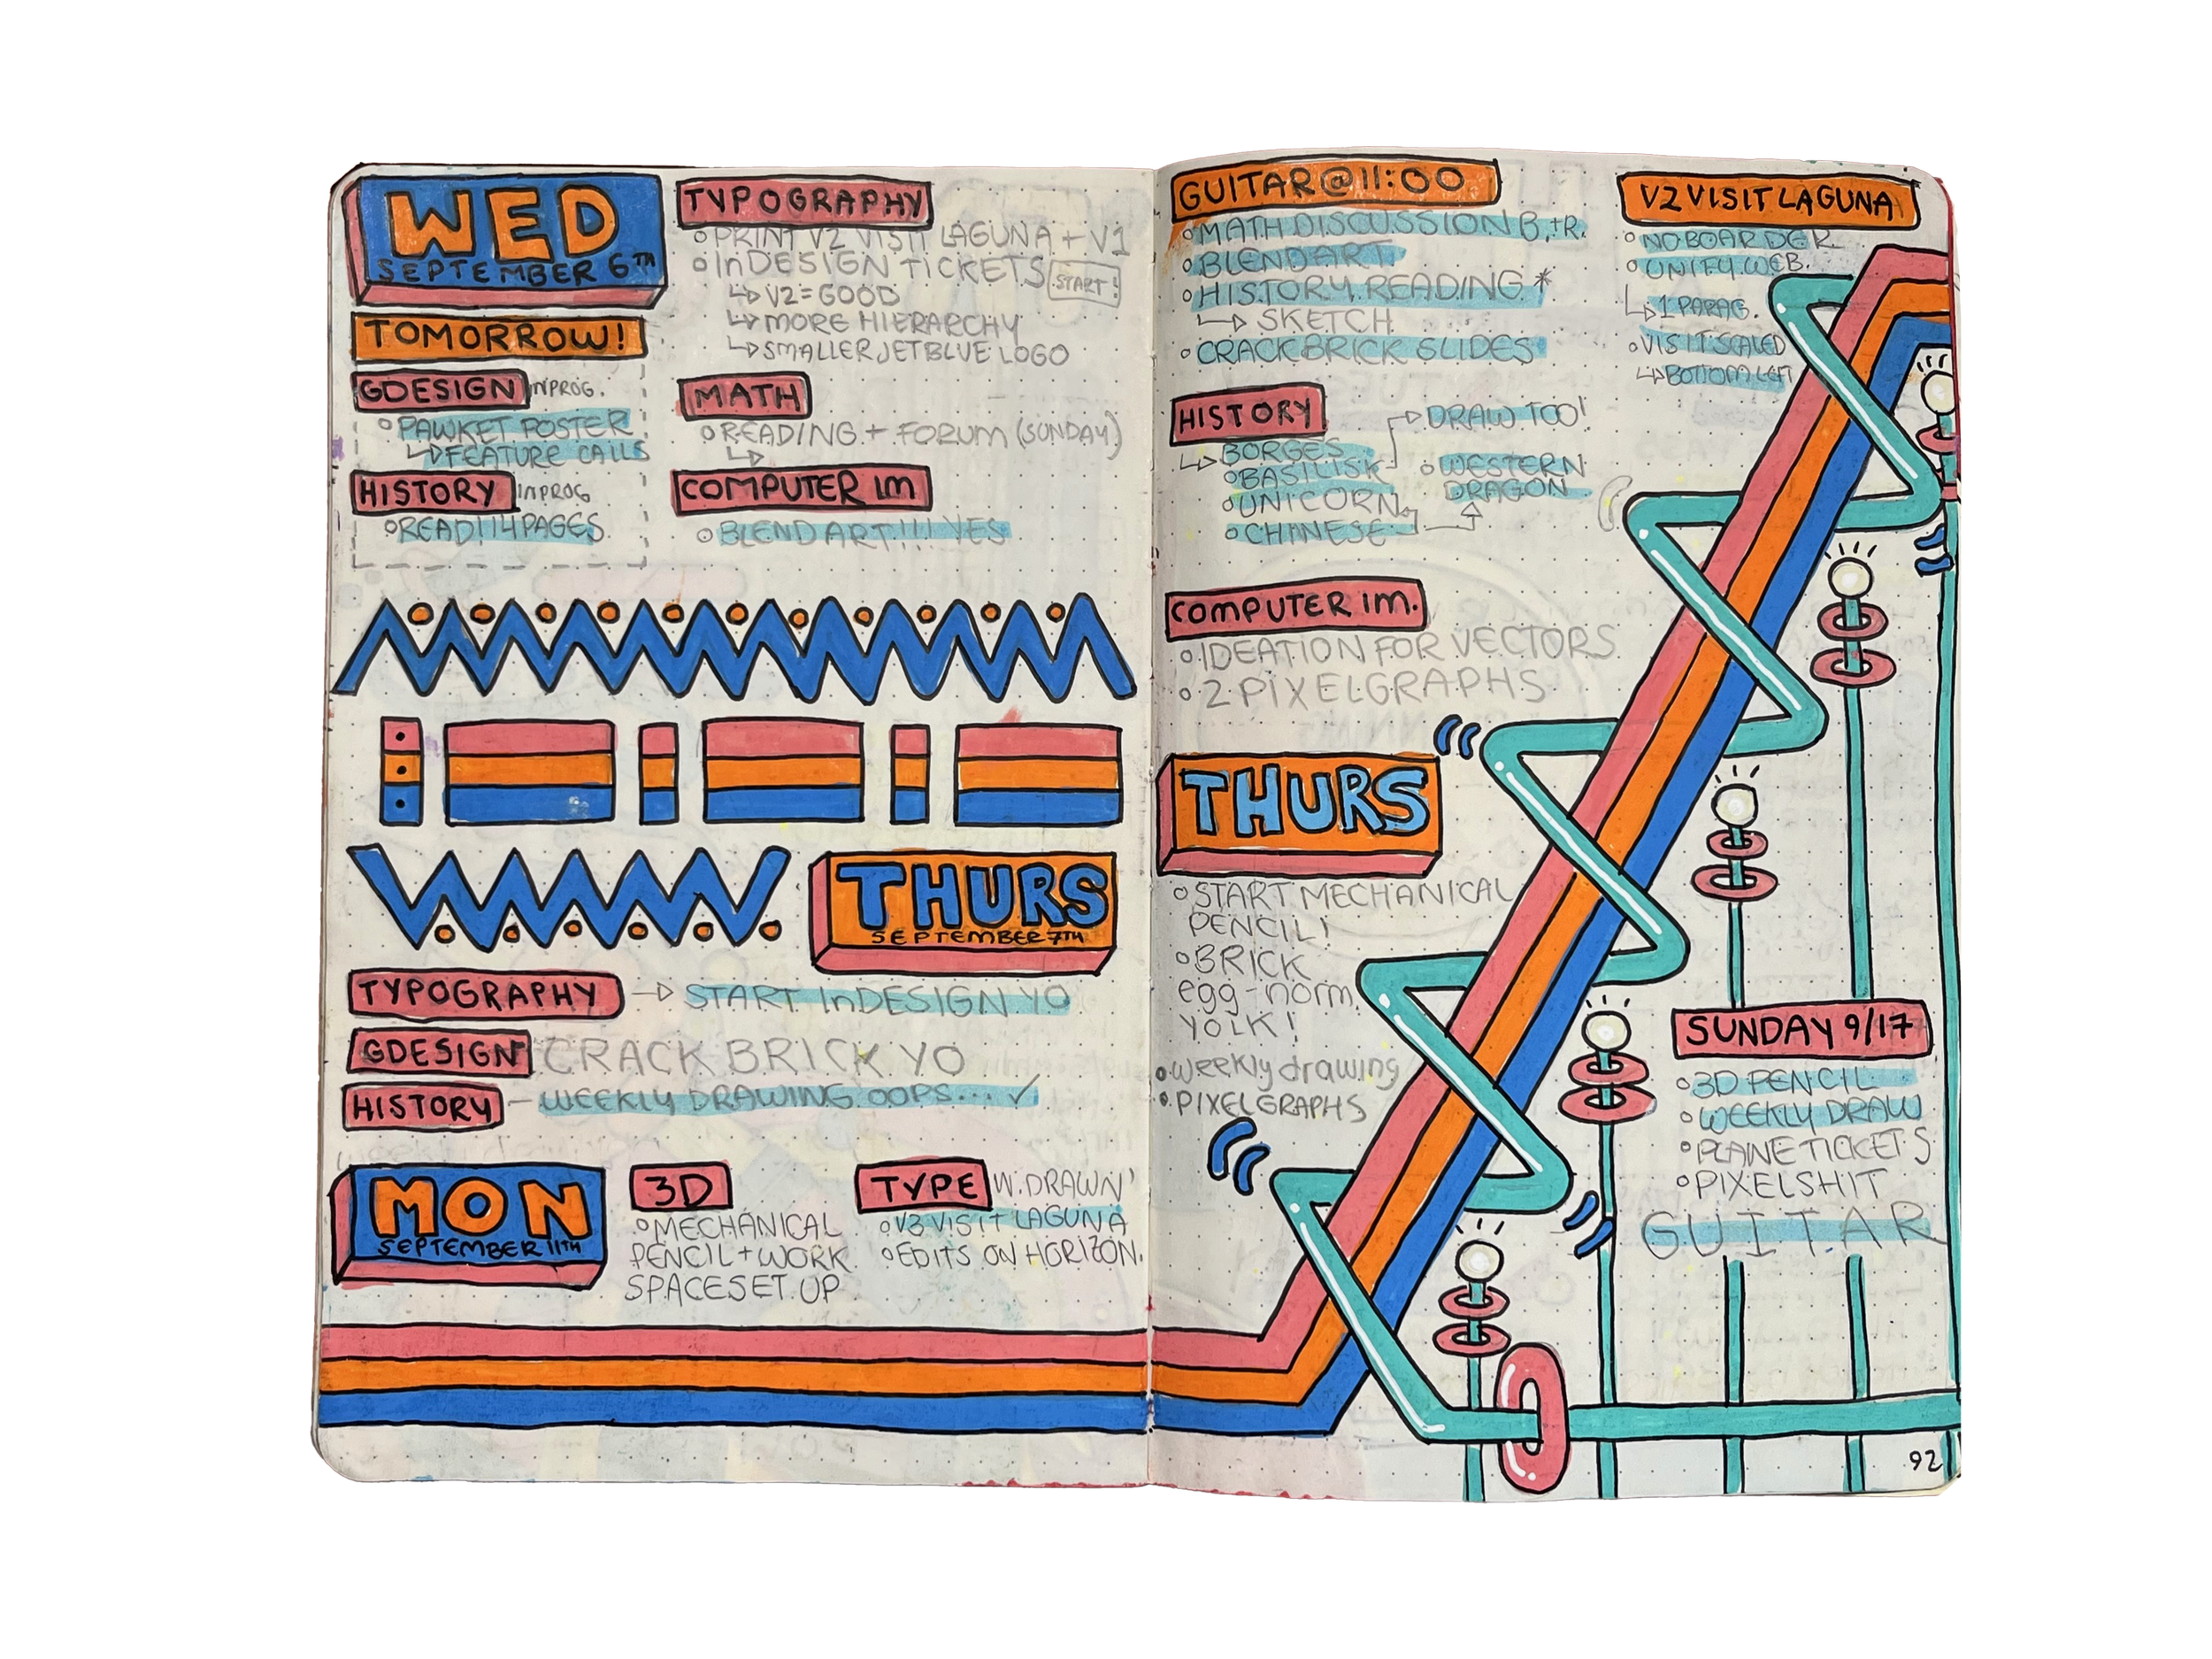 WED
SEPTEMBER 6TH
TOMORROW!
GDESIGN IN PROG.
PAWKET POSTER
FEATURE CALLS
HISTORY IN PROG
READ! 14 PAGES
TYPOGRAPHY
PRINT V2 VISIT LAGUNA + V1
InDESIGN TICKETS START!
V2 = GOOD
MORE HIERARCHY
SMALLER JETBLUE LOGO
MATH
READING + FORUM (SUNDAY)
COMPUTER IM
BLEND ART!!! YES
THURS
SEPTEMBER 7TH
TYPOGRAPHY → START InDESIGN YO
GDESIGN CRACK BRICK YO
HISTORY – WEEKLY DRAWING OOPS... ✓
MON
SEPTEMBER 11TH
3D
MECHANICAL
PENCIL + WORK
SPACE SET UP
TYPE W. DRAWN'
V3 VISIT LAGUNA
EDITS ON HORIZON.
GUITAR @ 11:00
MATH DISCUSSION B. + R.
BLEND ART
HISTORY READING *
SKETCH
CRACK BRICK SLIDES
V2 VISIT LAGUNA
NO BOARDER
UNIFY WEB.
1 PARAG.
VISIT SCALED
BOTTOM LEFT
HISTORY
BORGES
BASILISK
UNICORN
CHINESE
DRAW TOO!
WESTERN
DRAGON
COMPUTER IM.
IDEATION FOR VECTORS
2 PIXELGRAPHS
THURS
START MECHANICAL
PENCIL!
BRICK
egg - norm.
YOLK!
weekly drawing
PIXELGRAPHS
SUNDAY 9/17
3D PENCIL
WEEKLY DRAW
PLANE TICKETS
PIXELSHIT
GUITAR
92